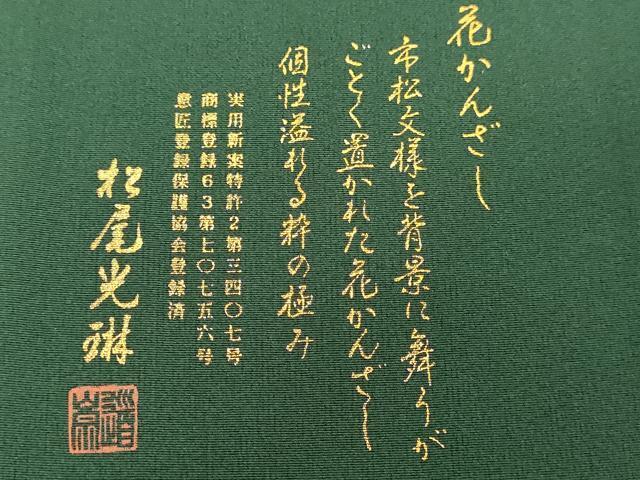 花かんざし
市松文様を背景に舞うが
ごとく置かれた花かんざし
個性溢れる粋の極み
実用新案特許2第三四〇七号
商標登録63第七〇七五六号
意匠登録保護協会登録済
松尾光琳
道崇